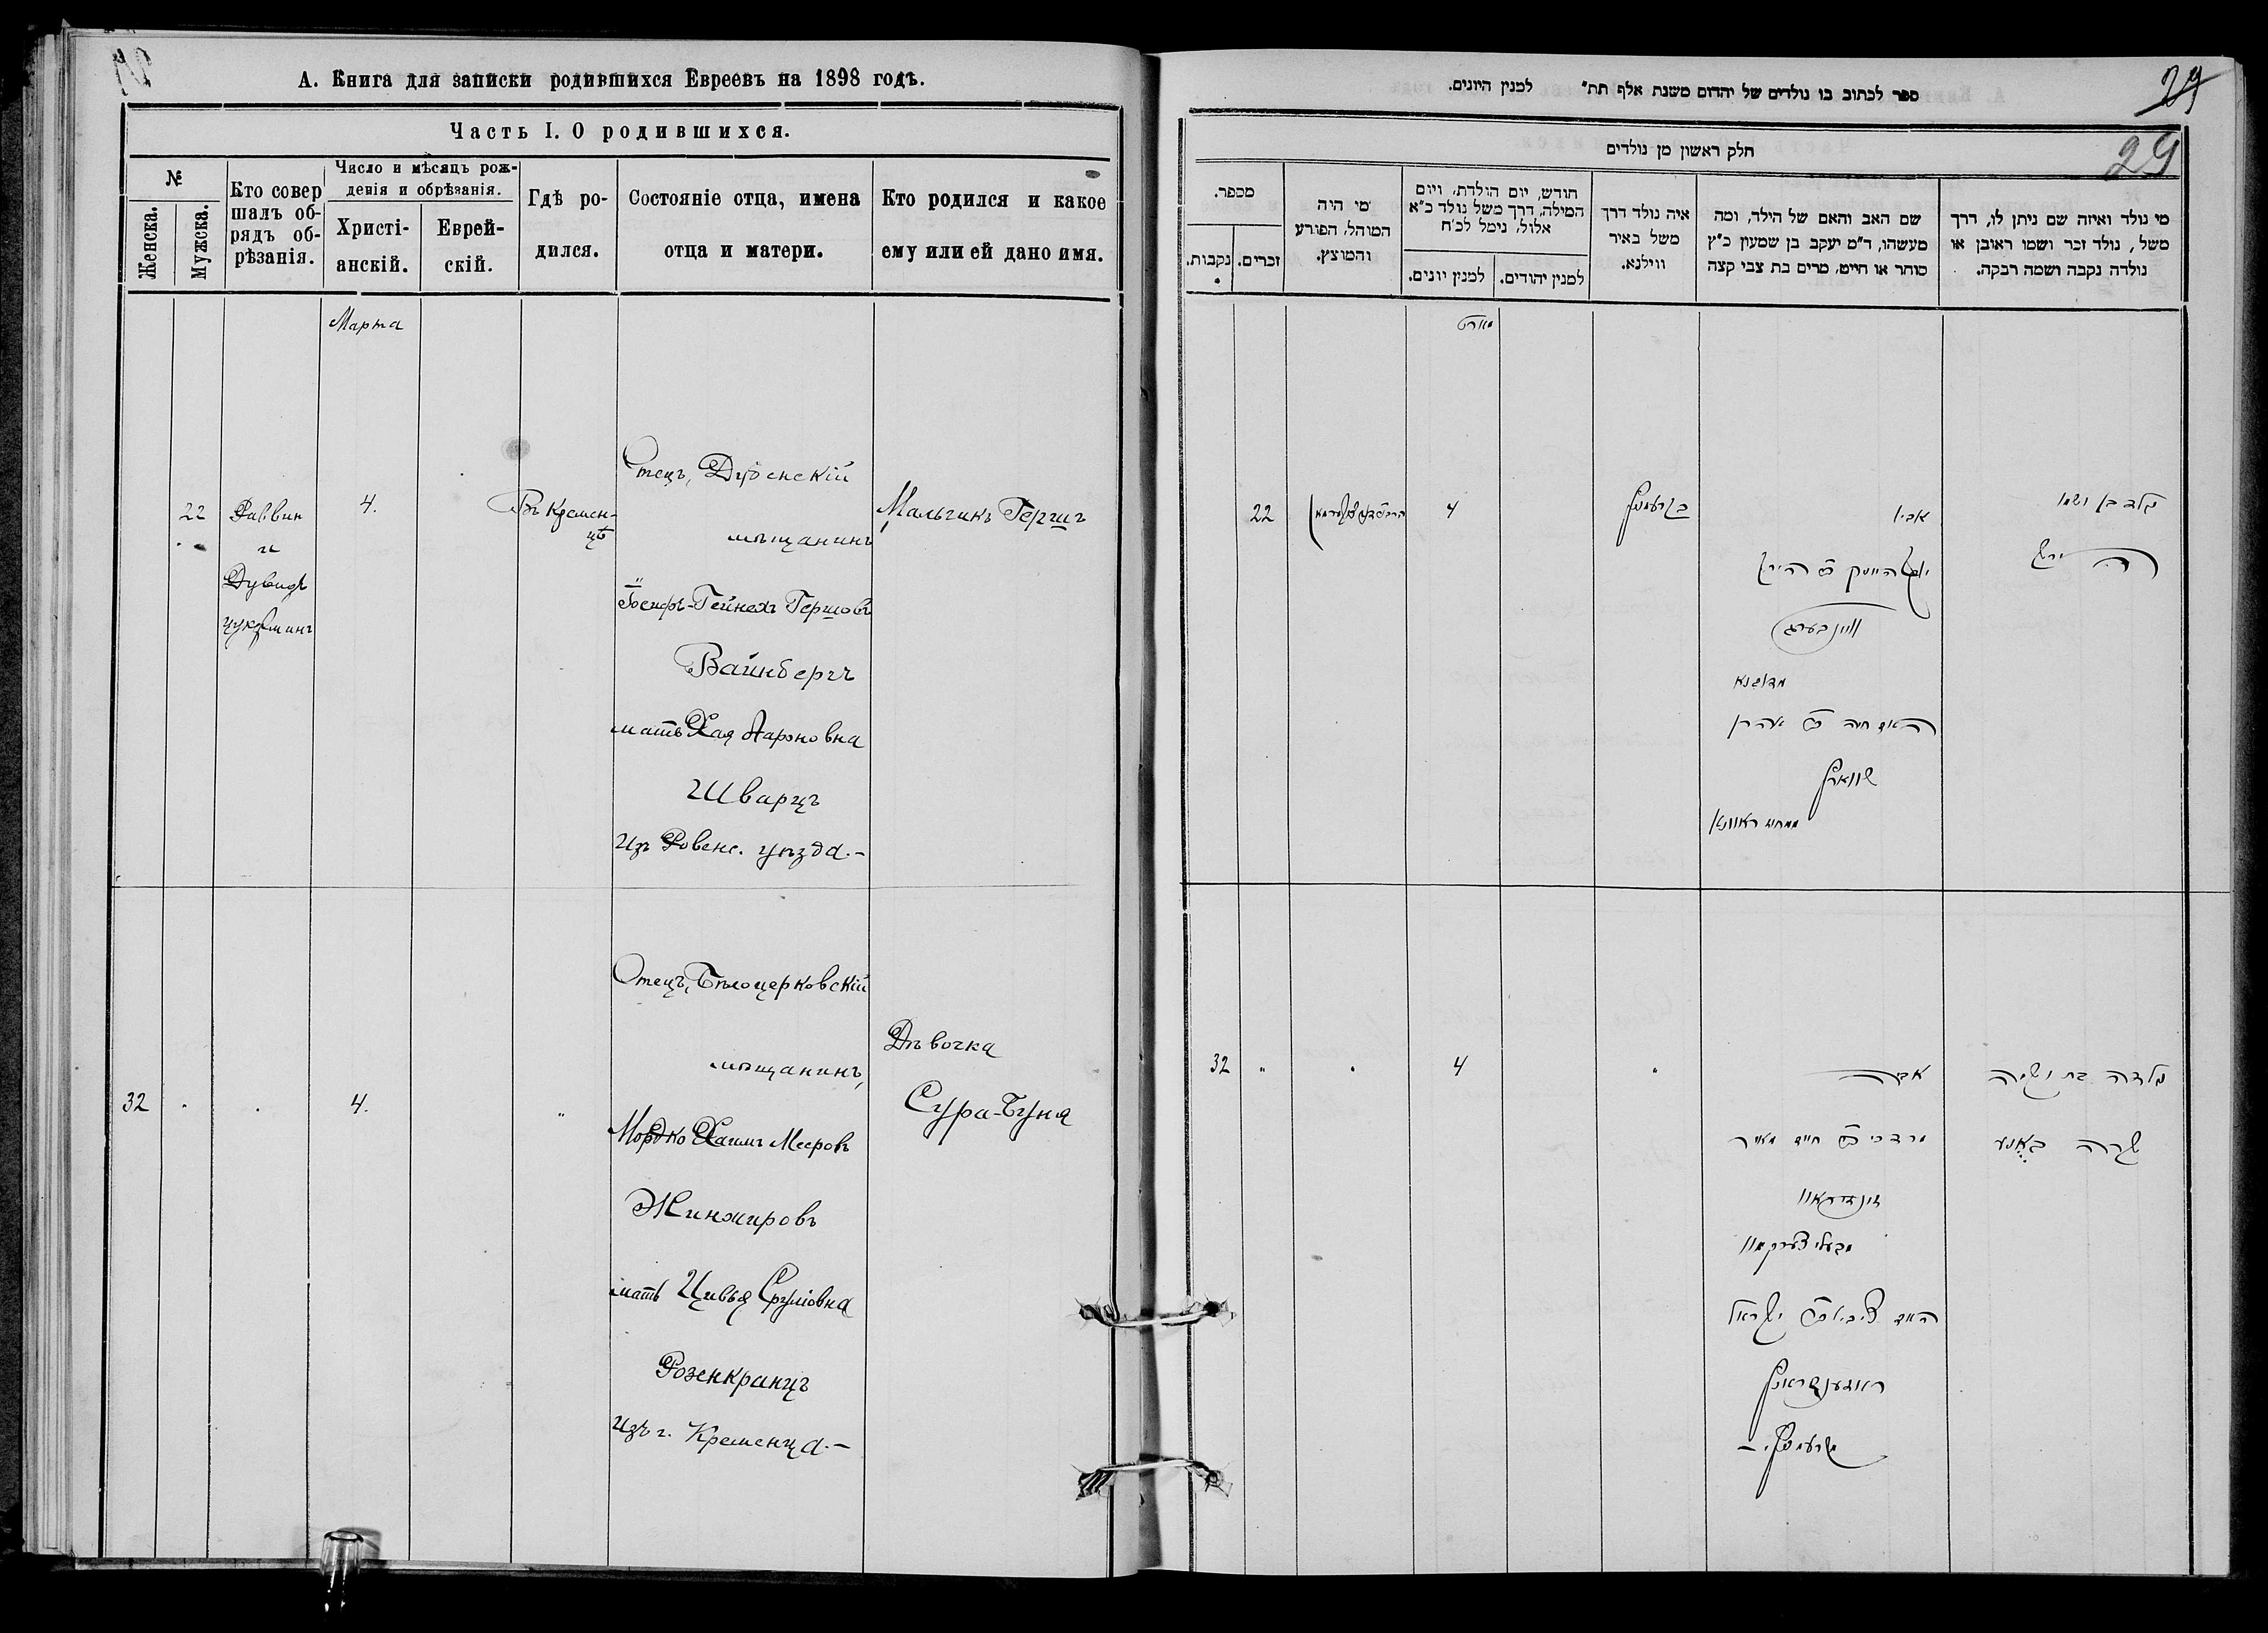 А. Книга для записки родившихся Евреевъ на 1898 годъ.
Часть I. О родившихся.
№
Женска.
Мужска.
Кто совер
шалъ об-
рядъ об-
рѣзанія.
Число и мѣсяцъ рож-
денія и обрѣзанія.
Христі-
анскій.
Еврей-
скій.
Гдѣ ро-
дился.
Состояніе отца, имена
отца и матери.
Кто родился и какое
ему или ей дано имя.
Марта
22
Раввин
и
Дувидъ
4.
Въ Кремен-
цѣ
Отецъ, Дубенскій
мѣщанинъ
Іосифъ-Гейнехъ Гершовъ
Вайнбергъ
мать Хая Аароновна
Шварцъ
Изъ Ровенс. уѣзда.-
Мальчикъ Гершъ
32
4.
"
Отецъ, Бѣлоцерковскій
мѣщанинъ,
Мордко Хаимъ Мееровъ
Жинжировъ
мать Цивья Сруліовна
Розенкранцъ
Изъ г. Кременца.-
Дѣвочка
Сура-Буня
ספר לכתוב בו נולדים של יהדום משנת אלף תת" למנין היונים.
29
29
חלק ראשון מן נולדים
מספר.
נקבות.
זכרים.
מי היה
המוהל, הפורע
והמוצץ.
חודש, יום הולדת, ויום
המילה, דרך משל נולד כ"א
אלול, נימל לכ"ח
למנין יונים.
למנין יהודים.
איה נולד דרך
משל באיר
ווילנא.
שם האב והאם של הילד, ומה
מעשהו, ד"מ יעקב בן שמעון כ"ץ
סוחר או חייט, מרים בת צבי קצה
מי נולד ואיזה שם ניתן לו, דרך
משל, נולד זכר ושמו ראובן או
נולדה נקבה ושמה רבקה.
מארט
22
4
בקרעמניץ
אביו
יוסף היינוך ב"ר הירש
וויינבערג
מדובנא
האם חיה ב"ר אהרן
שווארץ
ראוונא
נולד בן ושמו
הירש
32
"
4
אביה
מרדכי ב"ר חיים מאיר
האם צביה ב"ר ישראל
ראזענקראנץ
קרעמניץ. -
נולדה בת ושמה
שרה בוניע